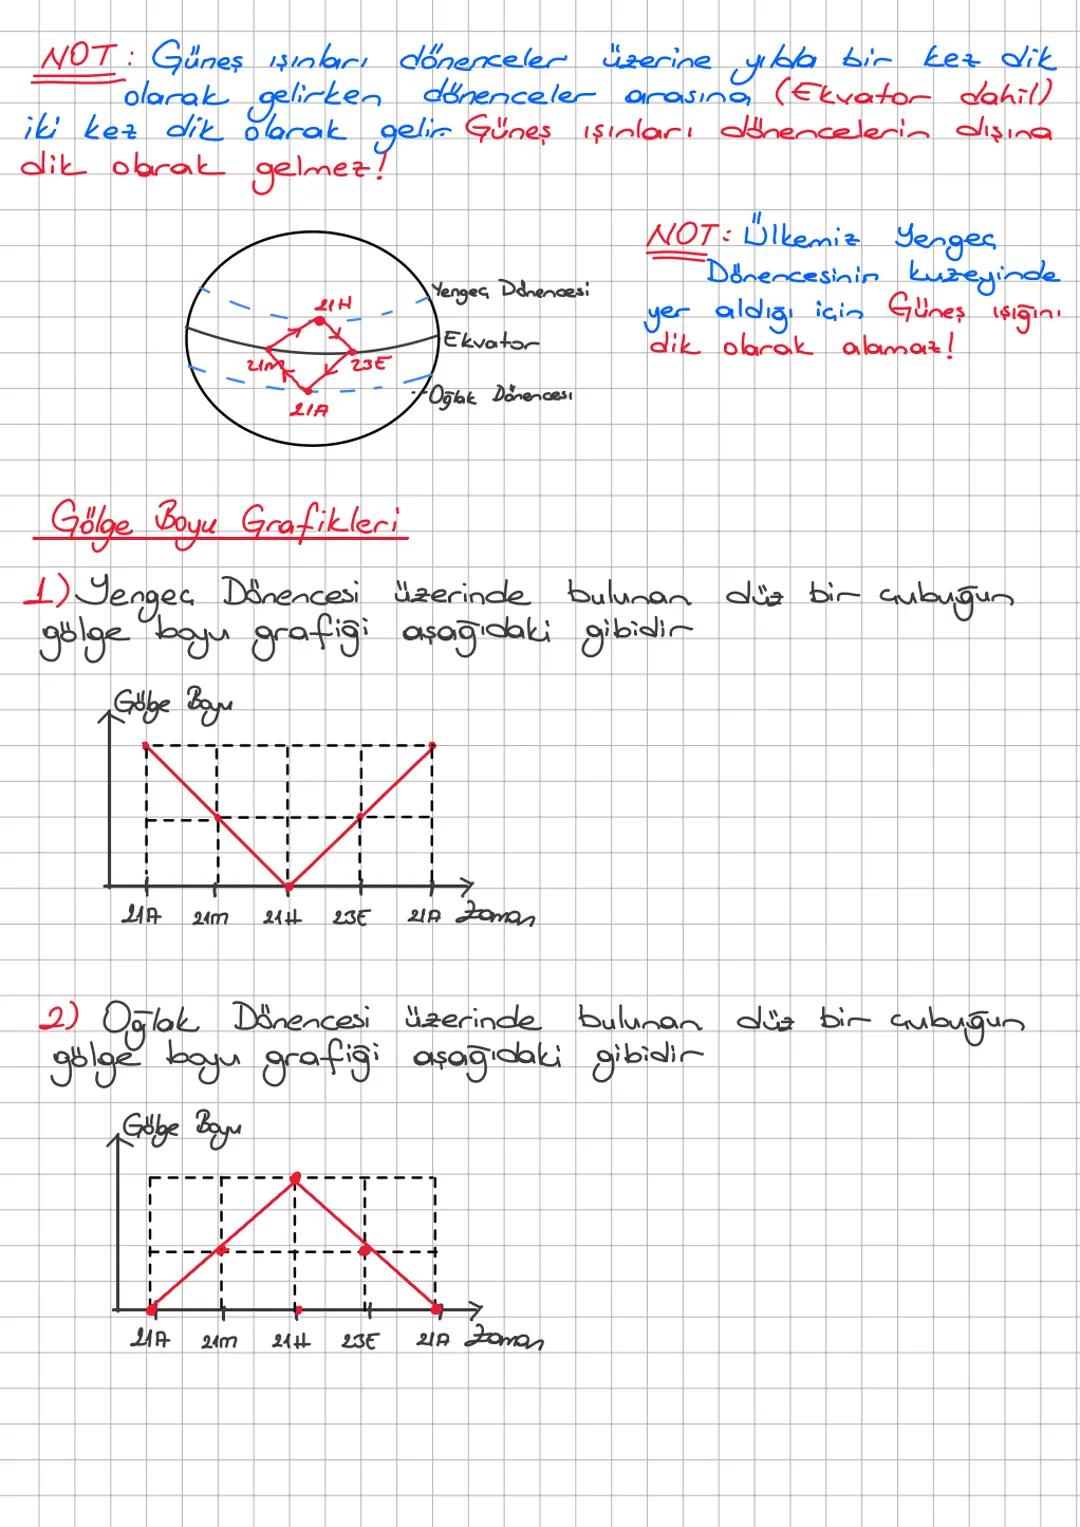 NOT: Güneş ışınları dönenceler üzerine yılda bir kez dik
olarak gelirken dönenceler arasına (Ekvator dahil)
iki kez dik olarak gelir Güneş ışınları dönencelerin dışına
dik olarak gelmez!
NOT: Ülkemiz Yengeç
Dönencesinin kuzeyinde
yer aldığı için Güneş ışığını
dik olarak alamaz!
Yengeç Dönencesi
21H
Ekvator
21M 23E
Oğlak Dönencesi
21A
Gölge Boyu Grafikleri
1) Yengeç Dönencesi üzerinde bulunan düz bir çubuğun
gölge boyu grafiği aşağıdaki gibidir
Gölge Boyu
21A 21M 21H 23E 21A Zaman
2) Oğlak Dönencesi üzerinde bulunan düz bir çubuğun
gölge boyu grafiği aşağıdaki gibidir
Gölge Boyu
21A 21M 21H 23E 21A Zaman